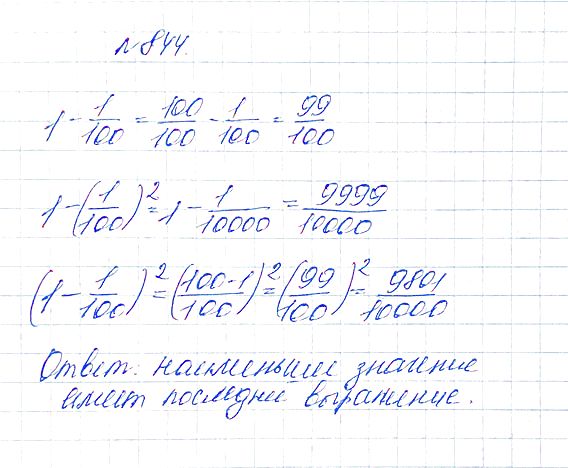 № 844.
1 - 1/100 = 100/100 - 1/100 = 99/100
1 - (1/100)² = 1 - 1/10000 = 9999/10000
(1 - 1/100)² = (100-1/100)² = (99/100)² = 9801/10000
Ответ: наименьшее значение
имеет последнее выражение.